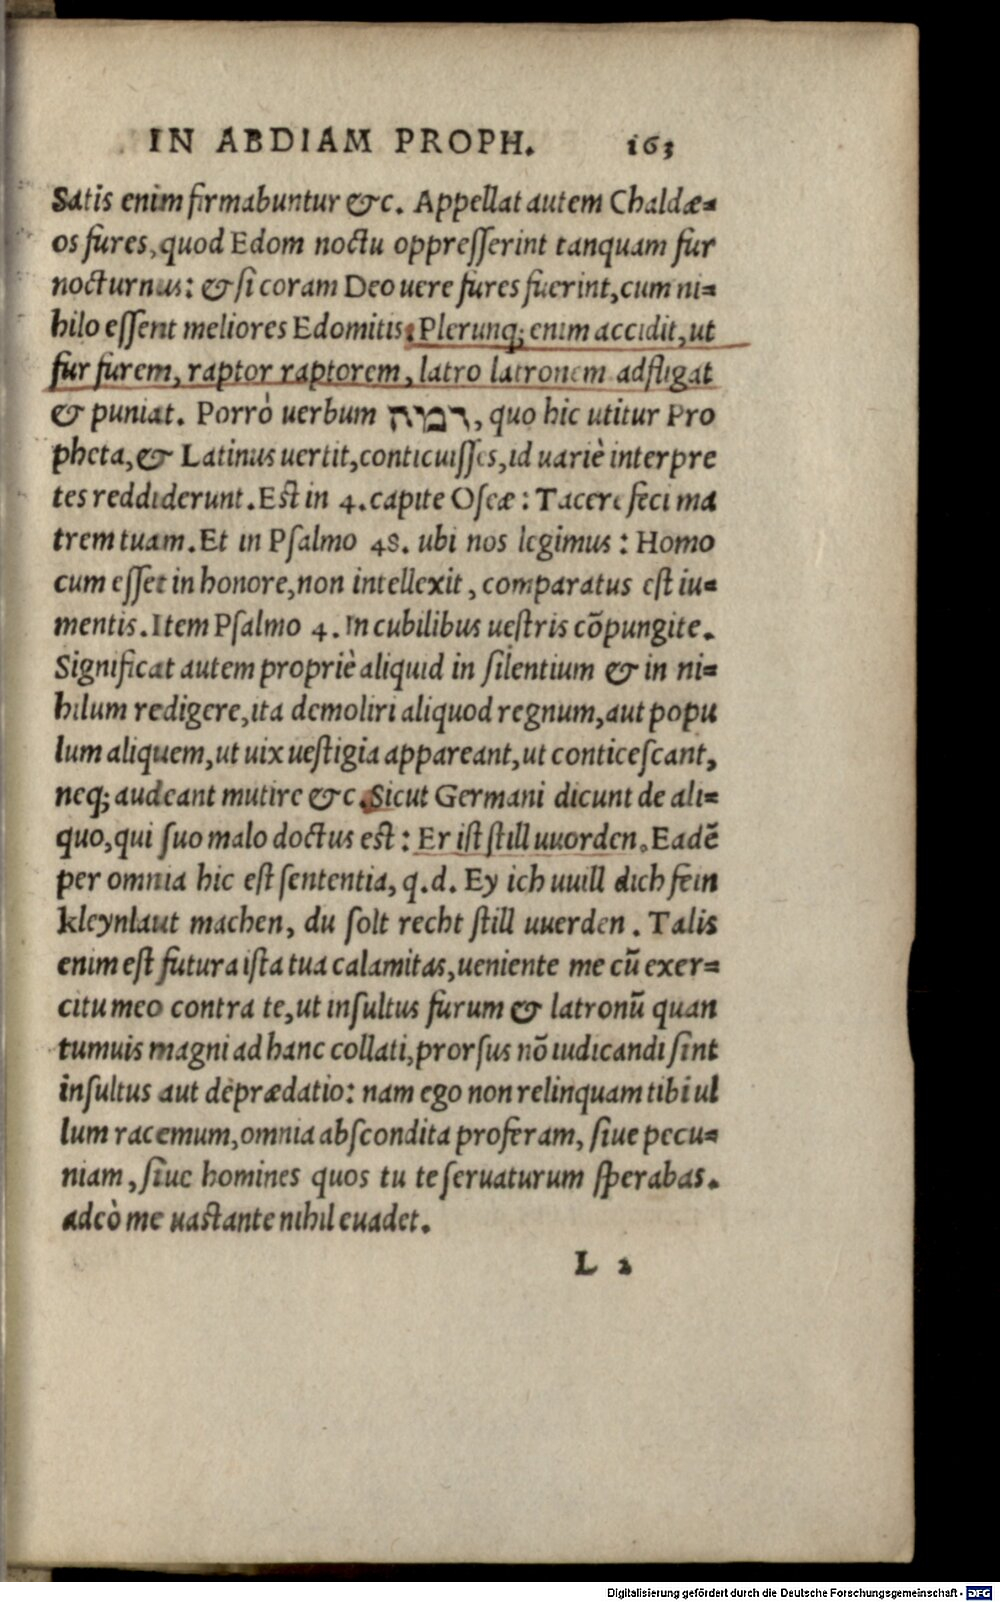 IN ABDIAM PROPH. 163
Satis enim firmabuntur &c. Appellat autem Chaldæ=
os fures, quod Edom noctu oppreſſerint tanquam fur
nocturnus: & ſi coram Deo uere fures fuerint, cum ni=
hilo eſſent meliores Edomitis. Plerunq; enim accidit, ut
fur furem, raptor raptorem, latro latronem adfligat
& puniat. Porrò uerbum דמה, quo hic utitur Pro
pheta, & Latinus uertit, conticuiſſes, id uariè interpre
tes reddiderunt. Eſt in 4. capite Oſeæ: Tacere feci ma
trem tuam. Et in Pſalmo 48. ubi nos legimus: Homo
cum eſſet in honore, non intellexit, comparatus eſt iu=
mentis. Item Pſalmo 4. In cubilibus ueſtris cõpungite.
Significat autem propriè aliquid in ſilentium & in ni=
hilum redigere, ita demoliri aliquod regnum, aut popu
lum aliquem, ut uix ueſtigia appareant, ut conticeſcant,
neq; audeant mutire &c. Sicut Germani dicunt de ali=
quo, qui ſuo malo doctus eſt: Er iſt ſtill uuorden. Eadẽ
per omnia hic eſt ſententia, q.d. Ey ich uuill dich fein
kleynlaut machen, du ſolt recht ſtill uuerden. Talis
enim eſt futura iſta tua calamitas, ueniente me cũ exer=
citu meo contra te, ut inſultus furum & latronũ quan
tumuis magni ad hanc collati, prorſus nõ iudicandi ſint
inſultus aut deprædatio: nam ego non relinquam tibi ul
lum racemum, omnia abſcondita proferam, ſiue pecu=
niam, ſiue homines quos tu te ſeruaturum ſperabas.
adeò me uaſtante nihil euadet.
L 2
Digitalisierung gefördert durch die Deutsche Forschungsgemeinschaft - DFG